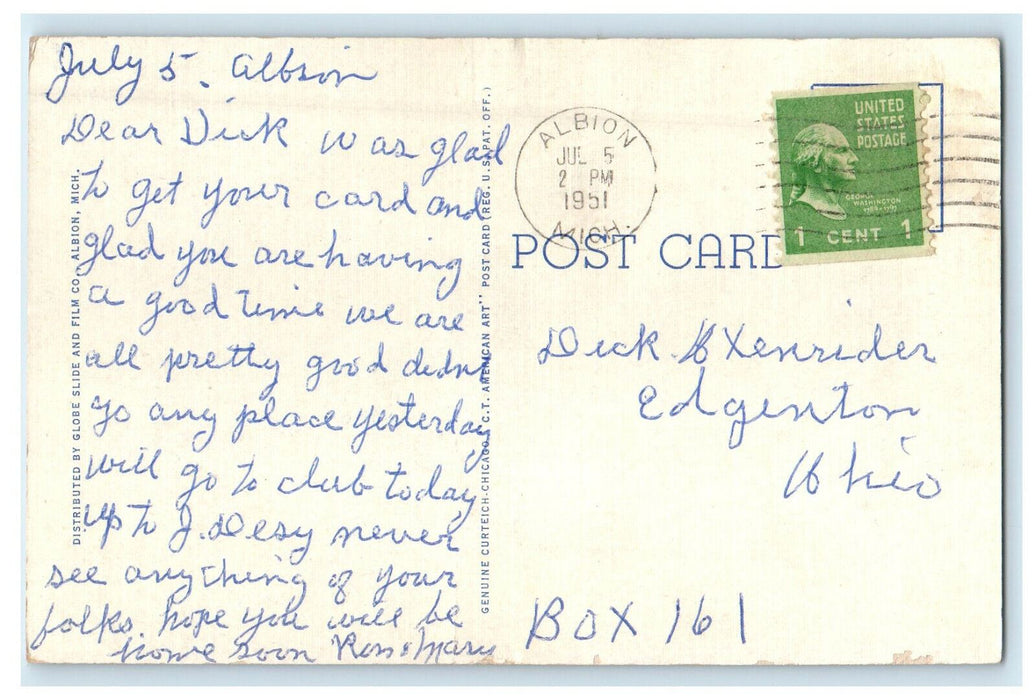 July 5. Albion
Dear Dick was glad
to get your card and
glad you are having
a good time we are
all pretty good didnt
go any place yesterday
will go to club today
up to J. Desy never
see anything of your
folks. hope you will be
home soon Mary
DISTRIBUTED BY GLOBE SLIDE AND FILM CO., ALBION, MICH.
GENUINE CURTEICH-CHICAGO "C.T. AMERICAN ART" POST CARD (REG. U.S. PAT. OFF.)
ALBION
JUL 5
2 PM
1951
MICH.
UNITED
STATES
POSTAGE
GEORGE
WASHINGTON
1 CENT 1
POST CARD
Dick Oxenrider
Edgerton
Ohio
BOX 161